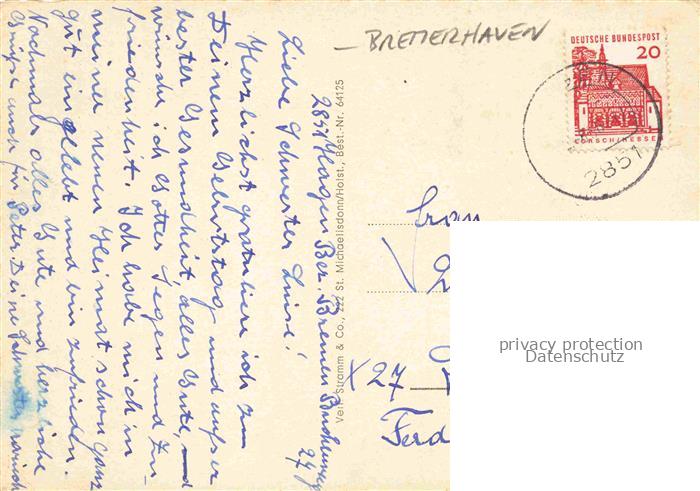 BREMERHAVEN
DEUTSCHE BUNDESPOST
20
LORSCH/HESSEN
2851
2851 Hagen Bez. Bremen
27
Liebe Schwester Luise!
Herzlichst gratuliere ich zum
Deinem Geburtstag und außer
bester Gesundheit, alles Gute, und
wünsche ich Gottes Segen und Zu-
friedenheit. Ich habe mich in
meiner neuen Heimat schon ganz
gut eingelebt und bin zufrieden.
Nochmals alles Gute und herzliche
Grüße auch für Peter Deine Schwester
Verl. Stramm & Co., 222 St. Michaelisdonn/Holst., Best.-Nr. 64125
Frau
X27
Ferd
privacy protection
Datenschutz